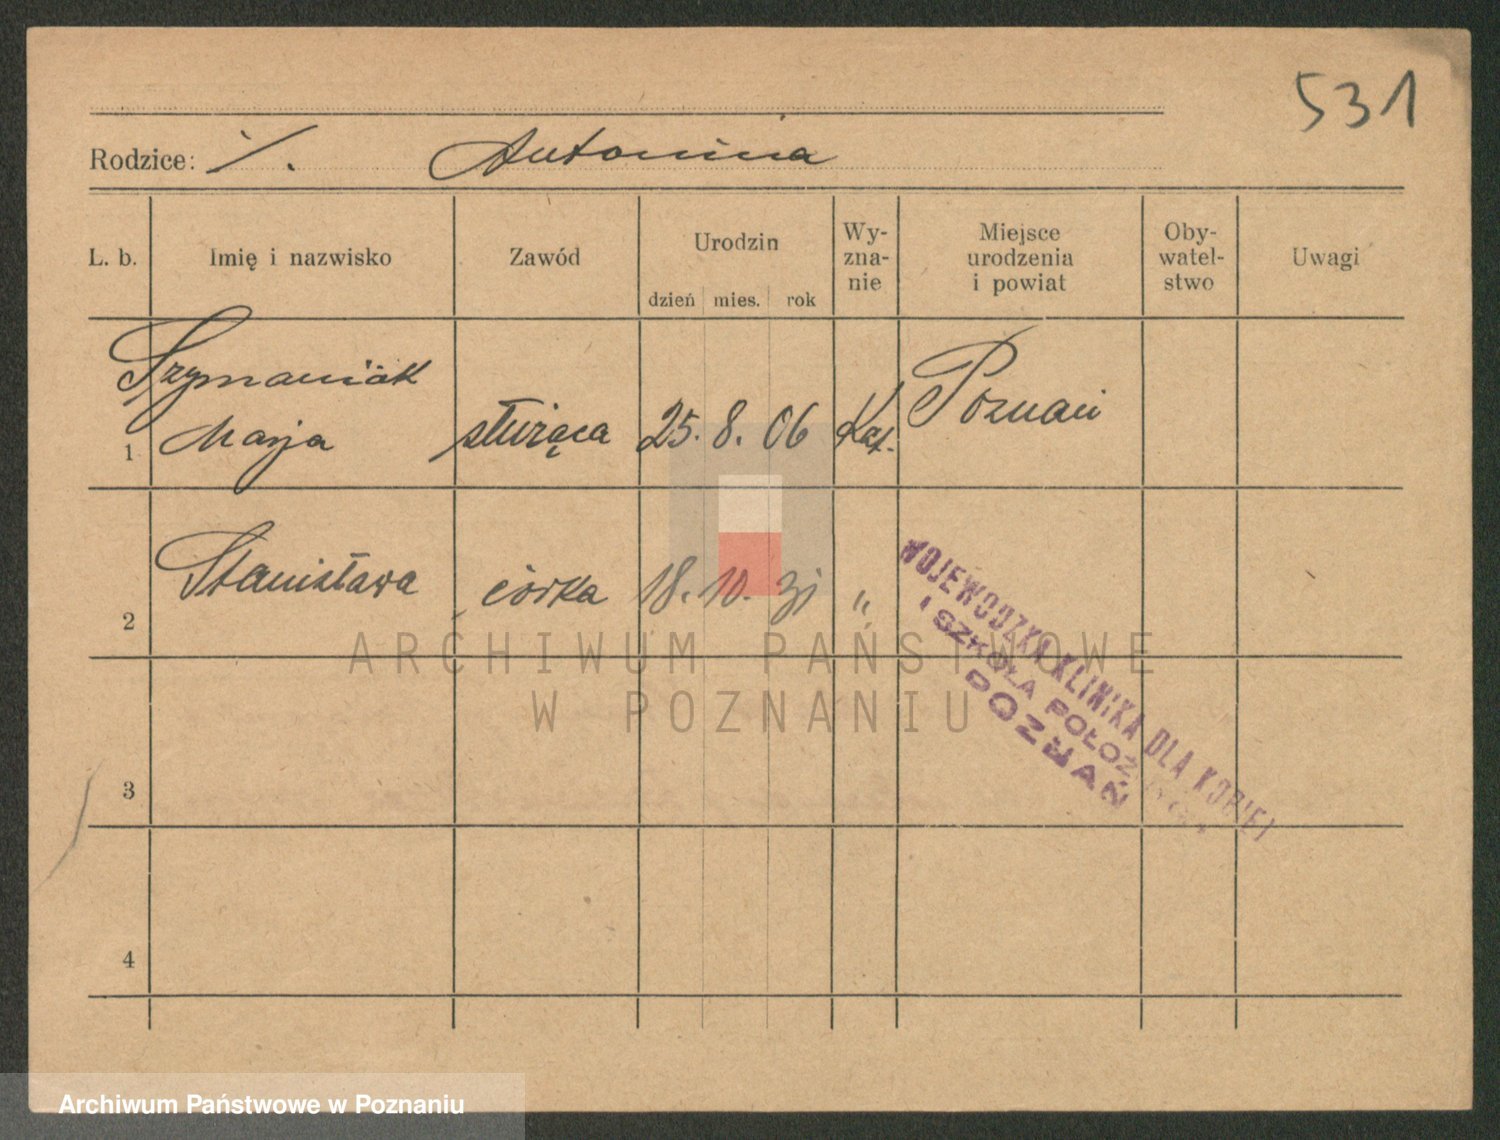 531
Rodzice: ·/. Antonina
L. b. Imię i nazwisko Zawód Urodzin dzień mies. rok Wy-zna-nie Miejsce urodzenia i powiat Oby-watel-stwo Uwagi
Szymaniak
1 Marja służąca 25. 8. 06 Kat. Poznań
2 Stanisława córka 18. 10. 31 "
WOJEWÓDZKA KLINIKA DLA KOBIET
I SZKOŁA POŁOŻ
POZNAŃ
3
4
ARCHIWUM PAŃSTWOWE
W POZNANIU
Archiwum Państwowe w Poznaniu